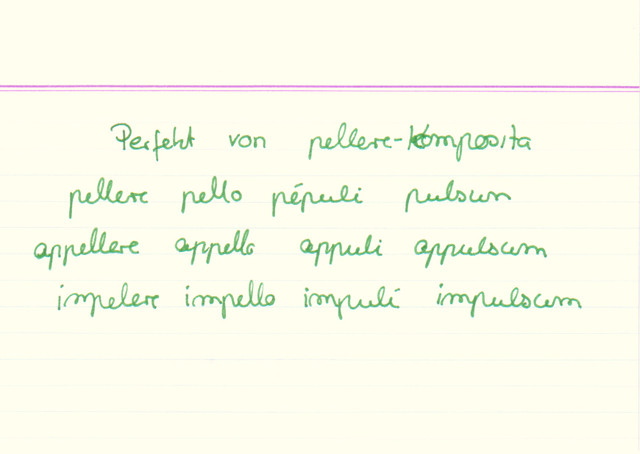 Perfekt von pellere-Komposita
pellere pello pépuli pulsum
appellere appello appuli appulsum
impelere impello impuli impulsum